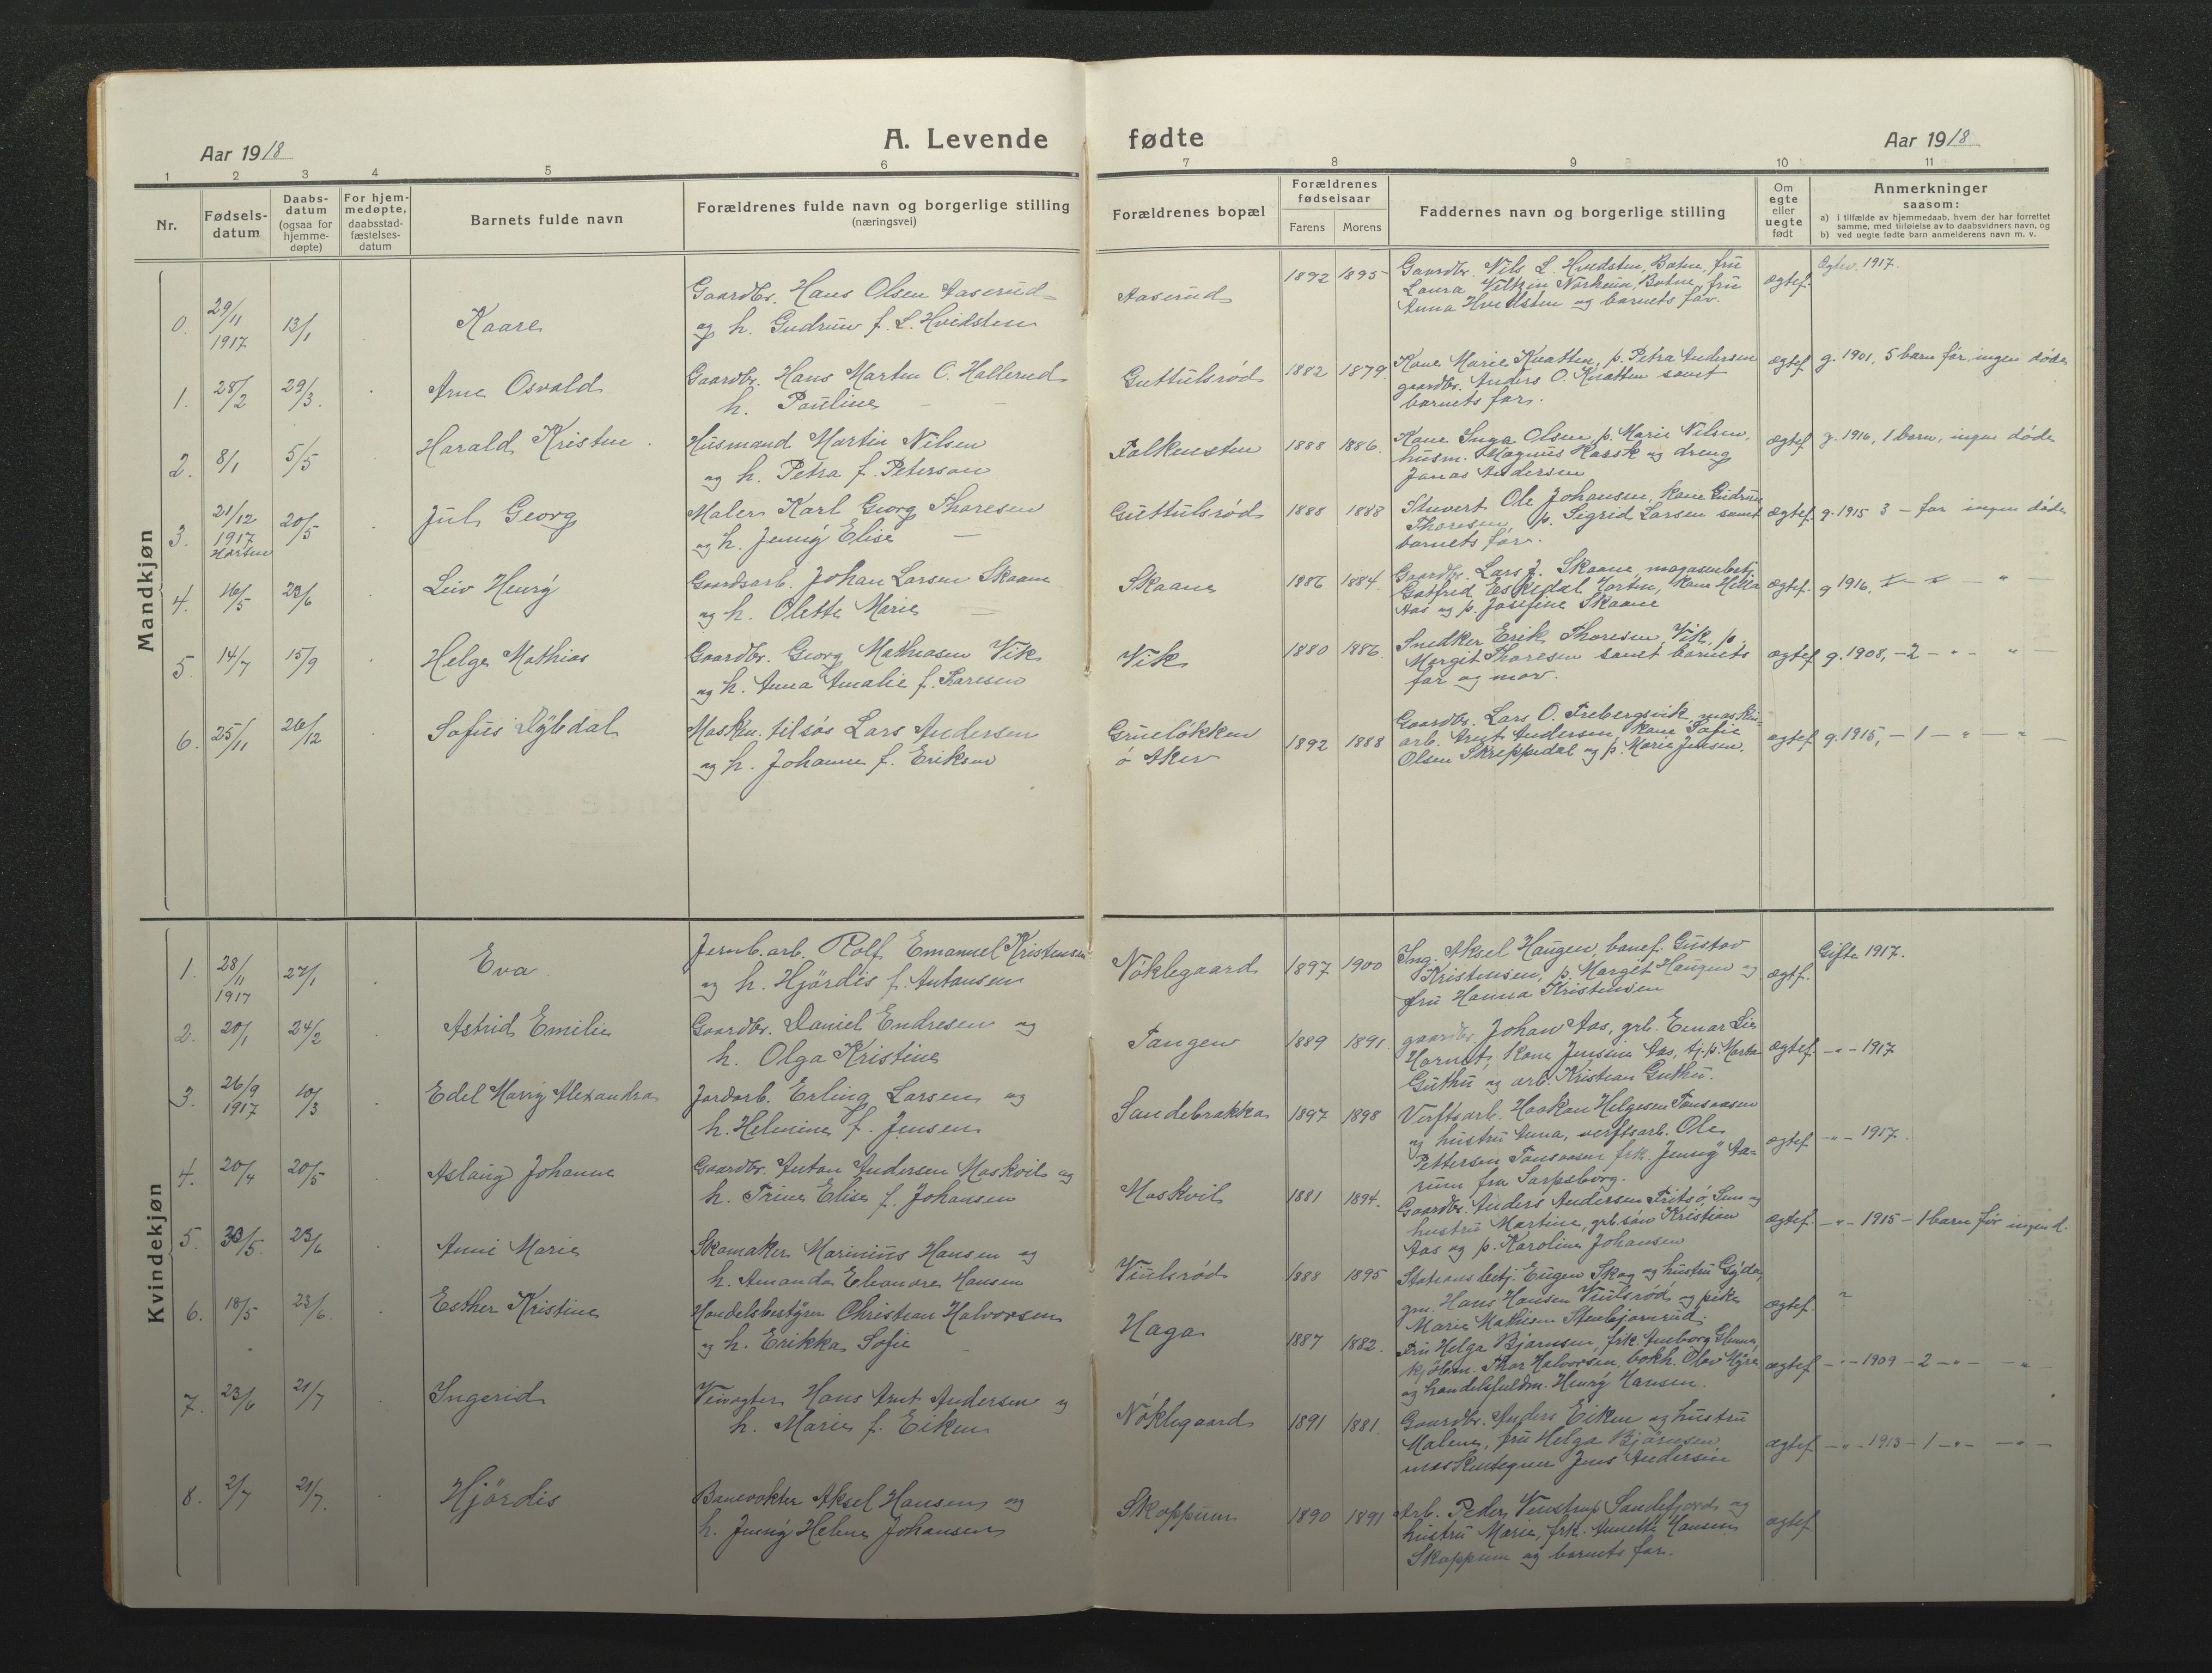 A. Levende fødte
Aar 1918
Aar 1918
1 2 3 4 5 6 7 8 9 10 11
Nr.
Fødsels-
datum
Daabs-
datum
(ogsaa for
hjemme-
døpte)
For hjem-
medøpte,
daabsstad-
fæstelses-
datum
Barnets fulde navn
Forældrenes fulde navn og borgerlige stilling
(næringsvei)
Forældrenes bopæl
Forældrenes
fødselsaar
Farens Morens
Faddernes navn og borgerlige stilling
Om
egte
eller
uegte
født
Anmerkninger
saasom:
a) i tilfælde av hjemmedaab, hvem der har forrettet
samme, med tilføielse av to daabsvidners navn, og
b) ved uegte fødte barn anmelderens navn m. v.
Mandkjøn
0. 29/11 1917 13/1 Kaare
Gaardbr. Hans Olsen Aaserud
og h. Gudrun f. L. Hvidsten
Aaserud 1892 1895
Gaardbr. Nils L. Hvidsten, Botne, fru
Laura Norheim, Botne, fru
Anna Hvidsten og barnets far.
ægtef. 1917.
1. 28/2 29/3. Arne Osvald
Gaardbr. Hans Martin O. Hallerud
h. Pauline — —
Guttulsrød 1882 1879.
Kone Marie Knatten, p. Petra Andersen
gaardbr. Anders O. Knatten samt
barnets far.
ægtef g. 1901, 5 barn før, ingen døde
2. 8/1 5/5 Harald Kristen.
Husmand Martin Nilsen
og h. Petra f. Peterson
Falkensten 1888 1886.
Kone Inga Olsen, p. Marie Nilsen,
husm. Magnus Karsk og dreng
Jonas Andersen
ægtef g. 1916, 1 barn, ingen døde
3. 21/12 1917 Horten 20/5 Jul Georg
Maler Karl Georg Thoresen
og h. Jenny Elise —
Guttulsrød 1888 1888
Stuvert Ole Johansen, kone Gudrun
Thoresen, p. Sigrid Larsen samt
barnets far.
ægtef. g. 1915 3 – før ingen døde
4. 16/5 23/6 Leiv Henry
Gaardsarb. Johan Larsen Skaane
og h. Olette Marie —
Skaane 1886 1884.
Gaardbr. Lars J. Skaane, magasinbetj.
Gotfrid Eskedal, Horten, kone Hilda
Aas og p. Josefine Skaane
ægtef. g 1916,
5. 14/7 15/9 Helge Mathias
Gaardbr. Georg Mathiasen Vik
og h. Anna Amalie f. Karesen
Vik 1880 1886.
Snedker Erik Thoresen, Vik, p.
Margit Thoresen samt barnets
far og mor.
ægtef g. 1908, – 2 – " – " —
6. 25/11 26/12 Sofus Dybdal
Maskin. tilsøs Lars Andersen
og h. Johanne f. Eriksen
Grueløkken
ø Aker 1892 1888
Gaardbr. Lars O. Frebergsvik, maskin-
arb. Arnt Andersen, kone Sofie
Olsen Skreppedal og p. Marie Jensen.
ægtef g. 1915, – 1 – " – " —
Kvindekjøn
1. 28/11 1917 27/1 Eva
Jernb.arb. Rolf Emanuel Kristensen
og h. Hjördis f. Antonsen
Nøklegaard 1897 1900
Ing. Aksel Haugen, banef. Gustav
Kristensen, p. Margit Haugen og
fru Hanna Kristensen
ægtf. Gifte 1917.
2. 20/1 24/2 Astrid Emilie
Gaardbr. Daniel Endresen og
h. Olga Kristine
Tangen 1889 1891.
gaardbr. Johan Aas, grb. Einar Lie
Hornet, kone Jensine Aas, tj.p. Marta
Guthu og arb. Kristian Guthu.
ægtef. – " – 1917
3. 26/9 1917 10/3 Edel Harry Alexandra
Jordarb. Erling Larsen og
h. Helmine f. Jensen
Sandebrakka 1897 1898
Verftsarb. Haakon Helgesen Tonsaasen
og hustru Anna, verftsarb. Ole
Pettersen Tonsaasen frk. Jenny Aa-
rum fra Sarpsborg.
ægtef – " – 1917.
4. 20/4 20/5 Aslaug Johanne
Gaardbr. Anton Andersen Moskvil og
h. Trine Elise f. Johansen
Moskvil 1881 1894.
Gaardbr. Anders Andersen Fritsø, Sem og
hustru Martine, grb.søn Kristian
Aas og p. Karoline Johansen
ægtef. – " – 1915 – 1 barn før ingen d.
5. 30/5. 23/6 Anni Marie
Skomaker Marinius Hansen og
h. Amanda Eleonore Hansen
Viulsrød 1888 1895
Stationsbetj. Eugen Skog og hustru Gyda,
gm. Hans Hansen Viulsrød og pike
Marie Mathisen Stenbjørnrud.
ægtef. "
6. 18/5 23/6. Esther Kristine
Handelsbestyrer Christian Halvorsen
og h. Erikka Sofie —
Haga 1887 1882.
Fru Helga Bjørnsen, frk. Amborg Glenne,
kjøbm. Thor Halvorsen, bokh. Olav Myre
og handelsfuldm. Henry Hansen.
ægtef – " – 1909 – 2 – " – – " –
7. 23/6 21/7 Ingerid
Veivogter Hans Arnt Andersen og
h. Marie f. Eiken
Nøklegaard 1891 1881.
Gaardbr. Anders Eiken og hustru
Malene, fru Helga Bjørnsen,
maskintegner Jens Andersen
ægtef – " – 1913 – 1 – " – – " –
8. 2/7 21/7. Hjördis
Banevokter Aksel Hansen og
h. Jenny Helene Johansen
Skoppum 1890 1891
Arb. Peder Vinstrup, Sandefjord og
hustru Marie, frk. Annette Hansen
Skoppum og barnets far.
ægtef